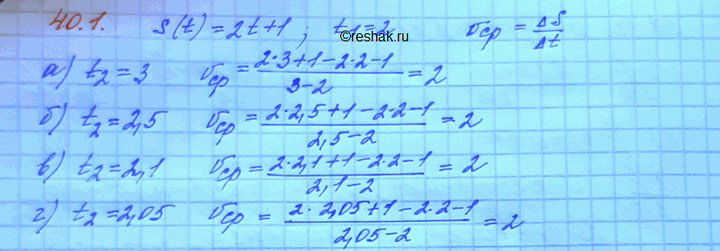 40.1. s(t) = 2t+1; t₁=2 υср = ΔS/Δt
reshak.ru
а) t₂=3 υср = (2·3+1-2·2-1)/(3-2) = 2
б) t₂=2,5 υср = (2·2,5+1-2·2-1)/(2,5-2) = 2
в) t₂=2,1 υср = (2·2,1+1-2·2-1)/(2,1-2) = 2
г) t₂=2,05 υср = (2·2,05+1-2·2-1)/(2,05-2) = 2